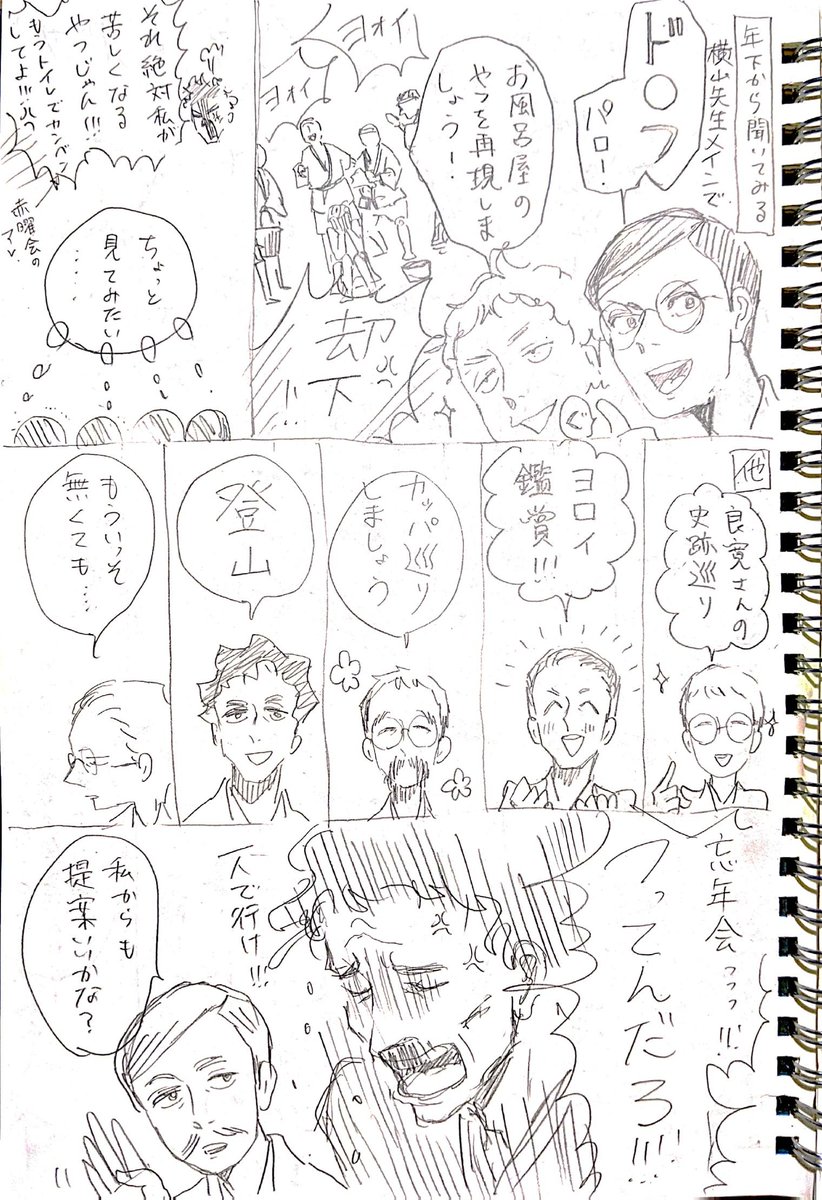 年下から聞いてみる
横山先生メインで
ド〇フ
パロー!
お風呂屋の
やつを再現しま
しょうー!
ヨオイ
ヨオイ
却
下
!!
それ絶対私が
苦しくなる
やつじゃん!!!
もうトイレでカンベン
してよ!!!
赤曜会の
ちょっと
見てみたい
・・・・・
他
良寛さんの
史跡巡り
ヨロイ
鑑賞!!!
カッパ巡り
しましょう
登
山
もういっそ
無くても…
忘年会
つってんだろ!!!
一人で行け!!
私からも
提案いいかな?